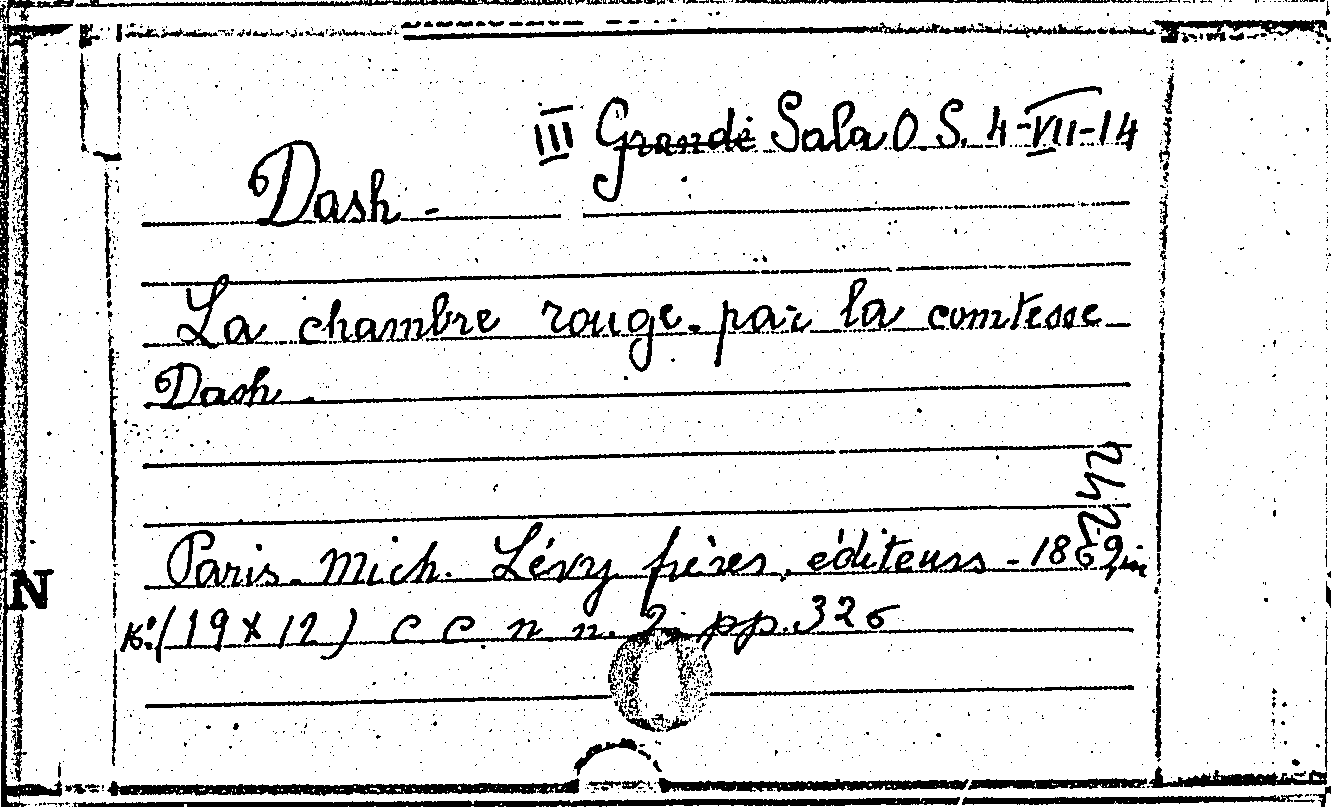 III Grande Sala O.S. 4-VII-14
Dash -
La chambre rouge. par la comtesse
Dash.
242
Paris. Mich. Lévy frères, éditeurs - 1869, in
16.° (19 X 12) C C. n n. 2. pp. 326
N